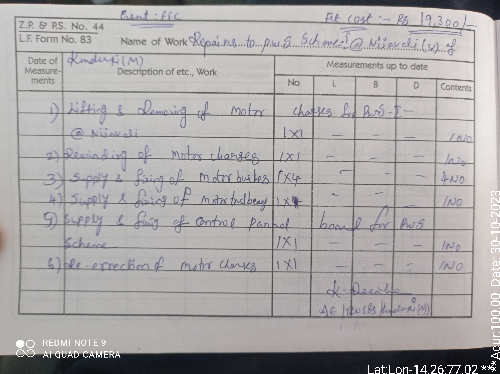 Z.P. & P.S. No. 44
L.F. Form No. 83
Est cost :- Rs 19,300/-
Name of Work Repairs to p.w.s Scheme-I @ Nijavali (v) of
Date of Measure-ments
Description of etc., Work
Measurements up to date
No L B D Contents
1) Lifting & Removing of motor charges for PWS-I -
@ Nijavali 1X1 - - - 1NO
2) Rewinding of motor charges 1X1 - - - 1NO
3) Supply & fixing of motor bushes 1X4 - - - 4NO
4) Supply & fixing of motor 1X1 - - - 1NO
5) Supply & fixing of control pannal board for PWS
Scheme 1X1 - - - 1NO
6) Re-errection of motor charges 1X1 - - - 1NO
REDMI NOTE 9
AI QUAD CAMERA
Lat:Lon-14.26:77.02
***Acur:100.00 Date: 30-10-2023